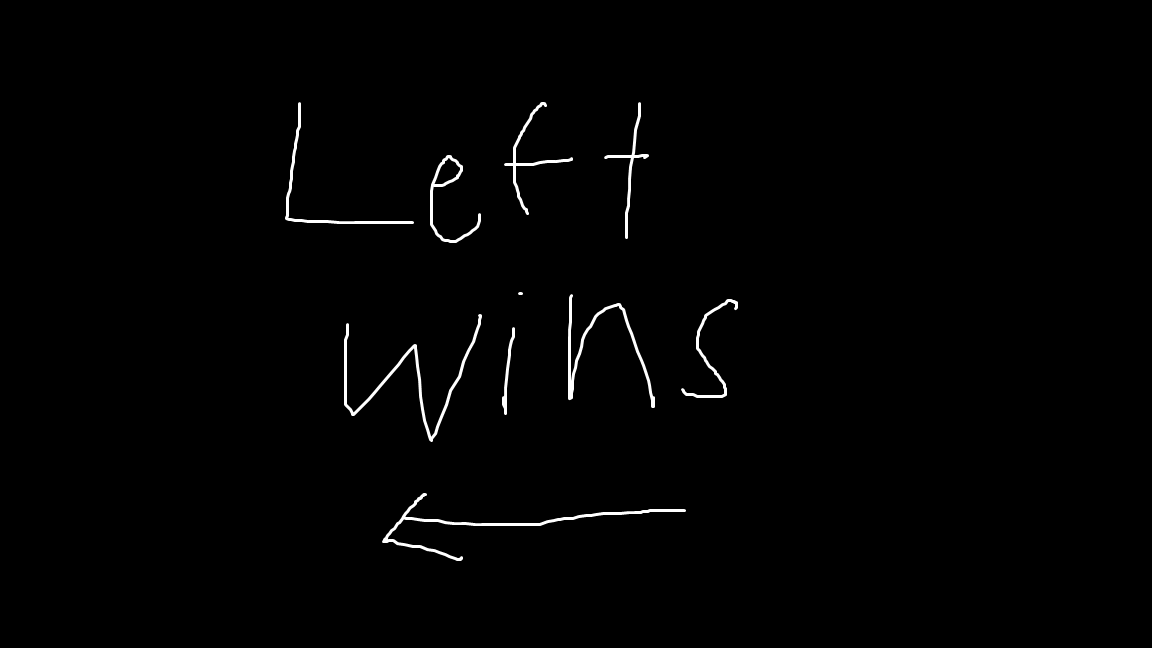 Left
wins